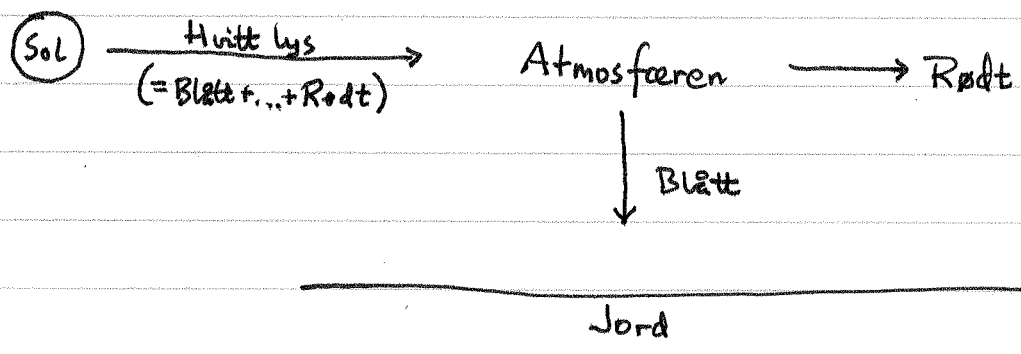 Sol
Hvitt lys
(=Blått+...+Rødt)
Atmosfæren
Rødt
Blått
Jord